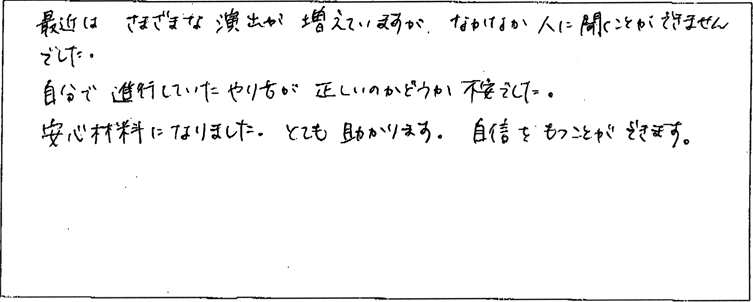 最近は さまざまな 演出が 増えていますが、なかなか 人に 聞くことができません
でした。
自分で 進行していた やり方が 正しいのかどうか 不安でした。
安心材料に なりました。とても 助かります。自信を もつことが できます。